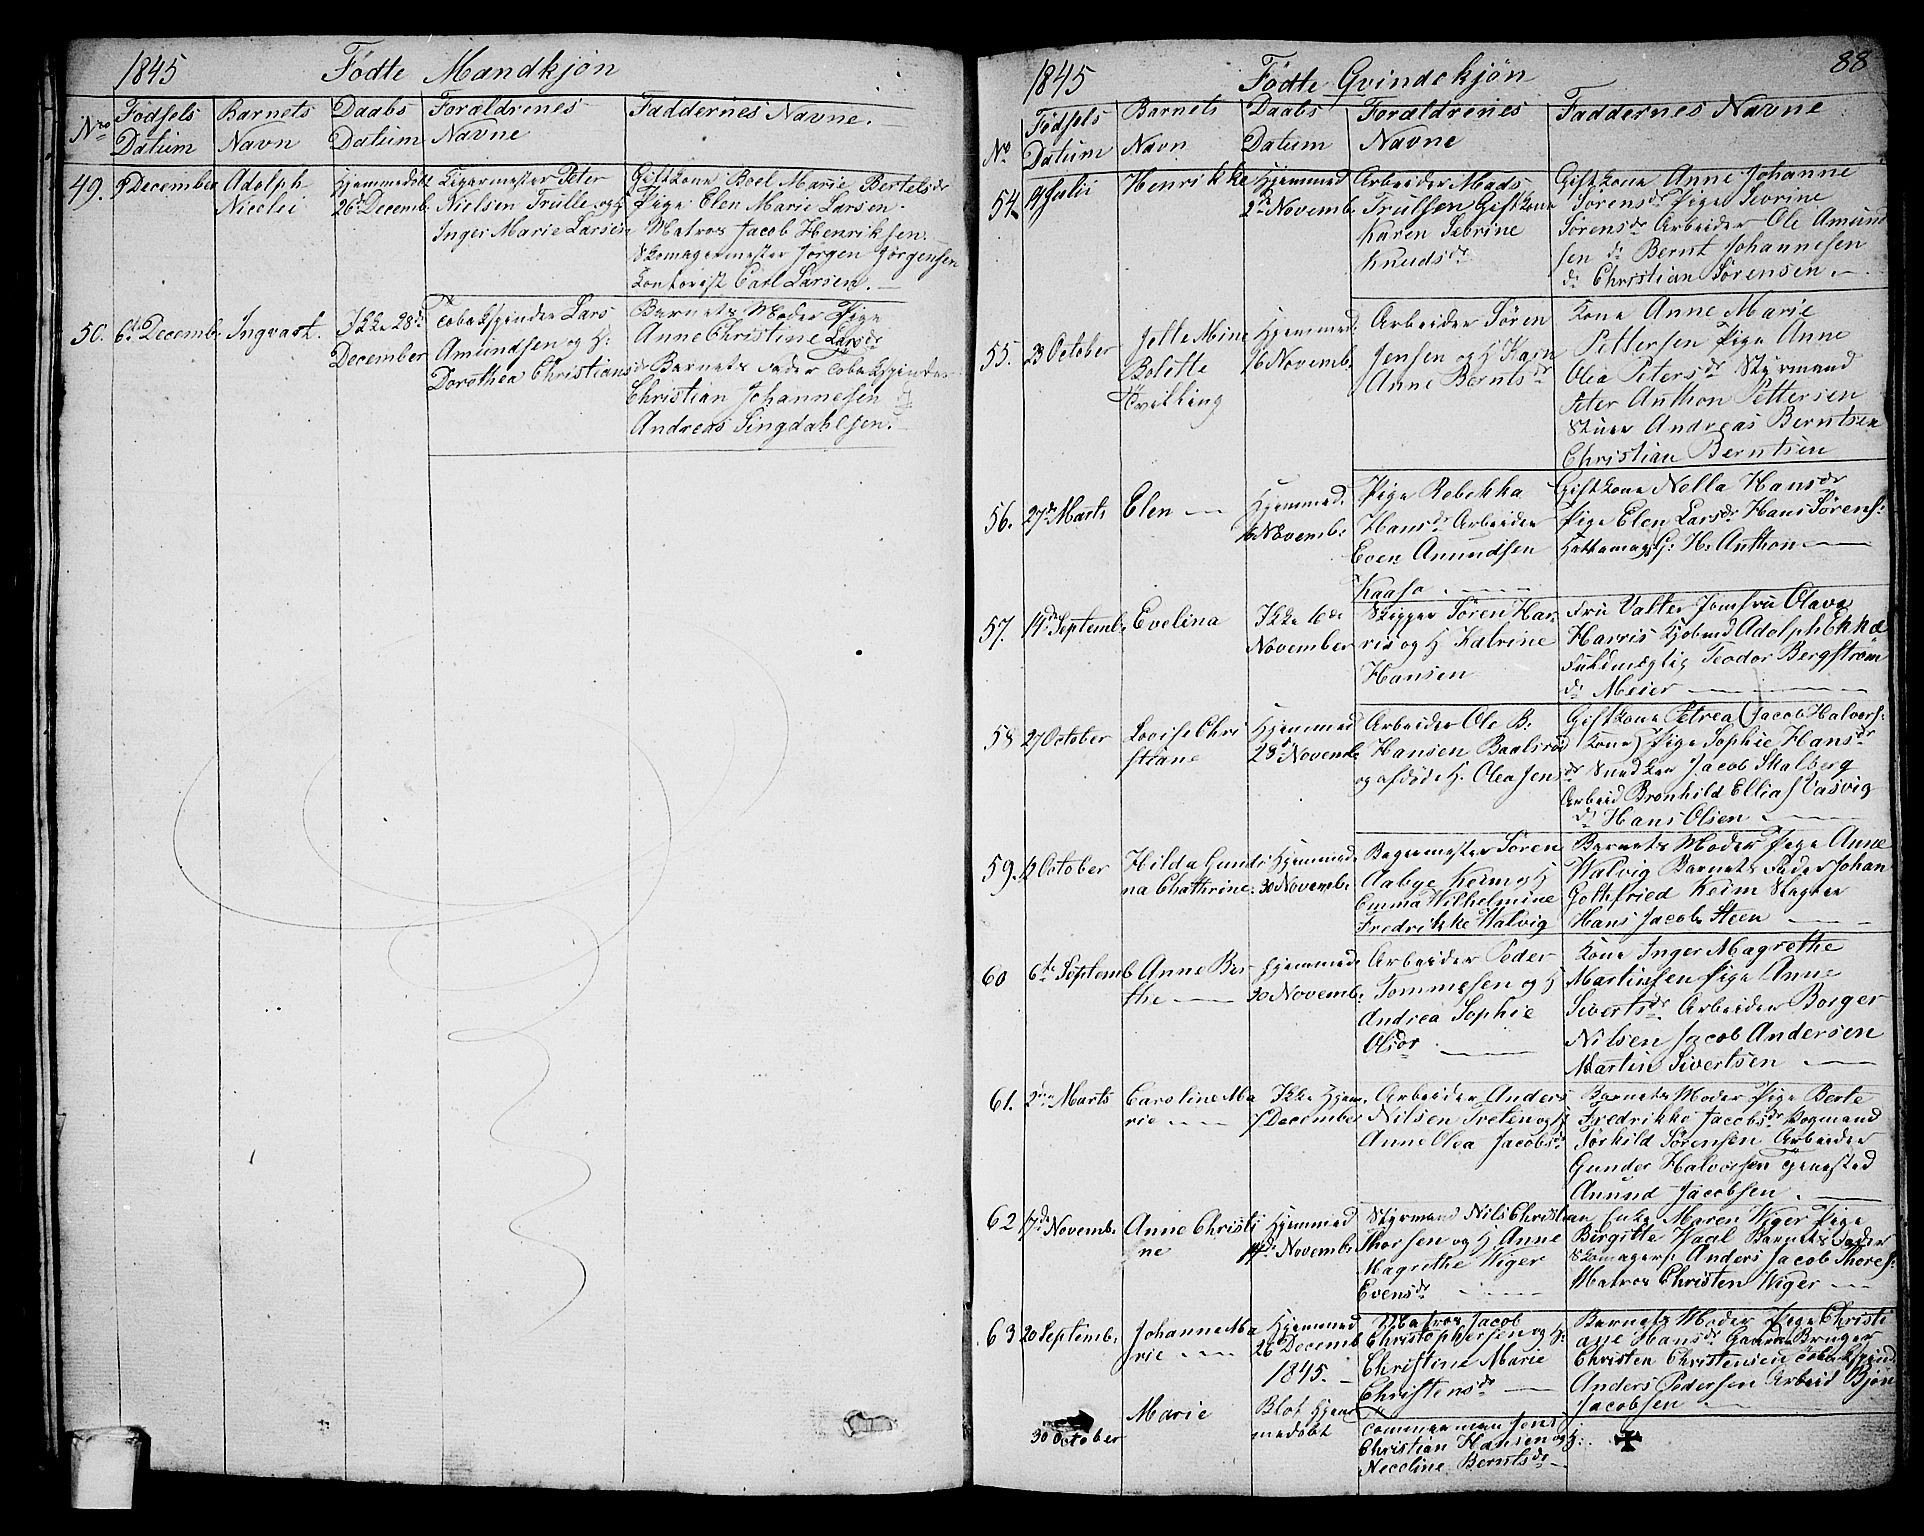 1845 Fødte Mandkjøn
Nro
Fødsels Datum
Barnets Navn
Daabs Datum
Forældrenes Navne
Faddernes Navne.
49.
9 December
Adolph
Nicolei
Hjemmedøbt
26d Decemb.
Peter
Nielsen Trulle og H
Inger Marie Larsen
Gift Kone Boel Marie Bertelsdr
Pige Elen Marie Larsen.
Matros Jacob Henriksen.
Skomagermester Jørgen Jørgensen
Kontorist Carl Larsen.
50.
6te Decemb.
Ingvart.
Ikke 28de
December
Tobakspinder Lars
Amundsen og H:
Dorothea Christiansdr
Barnets Moder Pige
Anne Christine Larsdr
Barnets Fader Tobakspinder
Christian Johannesen
Andreas Lingdahlsen.
1845 Fødte Qvindekjøn 88
No
Fødsels Datum
Barnets Navn
Daabs Datum
Forældrenes Navne
Faddernes Navne
54.
Julii
Henrikke
Hjemmed
2d Novemb.
Arbeider Mads
Trulsen Gift Kone
Karen Sebrine
Knudsdr
Gift Kone Anne Johanne
Sorensdr Pige Sevrine
Sørensdr Arbeider Ole Amund
sen do Bernt Johannesen
do Christian Sørensen.
55.
23 October
Jette Mine
Bolette
Tvilling
Hjemmed:
16 Novemb.
Arbeider Søren
Jensen og H Karn
Anne Berntsdr
Kone Anne Marie
Pettersen Pige Anne
Olea Petersdr Styrmand
Peter Anthon Pettersen
Stuer Andreas Berntsen
Christian Berntsen
56.
27de Marts
Elen
Hjemmed.
16 Novemb:
Pige Rebekka
Hansdr Arbeider
Even Amundsen
Kaasa
Gift Kone Nella Hansdr
Pige Elen Larsdr Hans Sørens:
Hattemag G: H. Anthon
57.
14de Septemb.
Evelina
Ikke 16de
November
Skipper Søren Har
ris og H Katrine
Hansen
Fru Valter Jomfru Olava
Harris Kjøbmd Adolph Ekhø
Fuldmægtig Teodor Bergstrøm
do Meier
58
27 October
Lovise Chri
stiane
Hjemmed
28d Novemb.
Arbeider Ole B.
Hansen Baalsrød
og afdøde H. Olea Jensdr
Gift Kone Petrea (Jacob Halvors:
Kone) Pige Sophie Hansdr
Snedker Jacob Skalberg
Arbeid Bronhild Ellias Vasvig
do Hans Olsen
59.
October
Hilda Gundi
na Chathrine.
Hjemmed.
30 Novemb:
Bagermester Søren
Aabye Keim og H
Emma Vilhelmine
Fredrikke Walvig
Barnets Moder Pige Anne
Walvig Barnets Fader Johan
Gothfried Keim
Hans Jacob Steen
60
6te Septemb
Anne Ber
the
Hjemmed
30 Novemb.
Arbeider Peder
Tommesen og H
Andrea Sophie
Olsdr
Kone Inger Magrethe
Martinsen Pige Anne
Sivertsdr Arbeider Borger
Nilsen Jacob Andersen
Martin Sivertsen
61.
2den Marts
Caroline Ma
rie
Ikke Hjem.
7 December
Arbeider Anders
Nilsen Treten og H
Anne Olea Jacobsdr
Barnets Moder Pige Berte
Fredrikke Jacobsdr Bogmand
Tørkild Sørensen Arbeider
Gunder Halvorsen
Amund Jacobsen.
62
17de Novemb.
Anne Christi
ne
Hjemmed
Novemb:
Styrmand Nils Christian
Thorsen og H Anne
Magrethe Wiger
Evensdr
Enke Maren Wiger Pige
Birgitte Waal Barnets Fader
Skomagers: Anders Jacob Thores:
Matros Christen Wiger
63
20 Septemb.
Johanne Ma
rie
Hjemmed
26 Decemb
1845.
Matros Jacob
Christophersen og H:
Christine Marie
Christensdr
Barnets Moder Pige Christi
ane Hansdr Gaard Bruger
Christen Christensen Tobakspind
Anders Pedersen Arbeid Bjøn
Jacobsen
30 October
Marie
Blot Hjem
medøbt
Tømmermand Jens
Christian Hansen og H:
Necoline Berntsdr